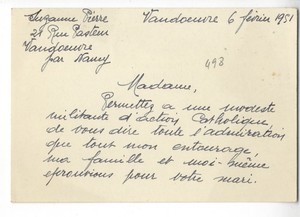 Suzanne Pierre
28 Rue Pasteur
Vandoeuvre
par Nancy
Vandoeuvre 6 février 1951
498
Madame,
Permettez a une modeste
militante d'Action Catholique,
de vous dire toute l'admiration
que tout mon entourage,
ma famille et moi-même
éprouvions pour votre mari.